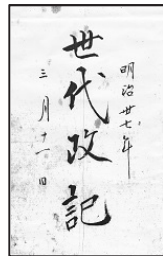 明治卅七年
世代改記
三月十一日